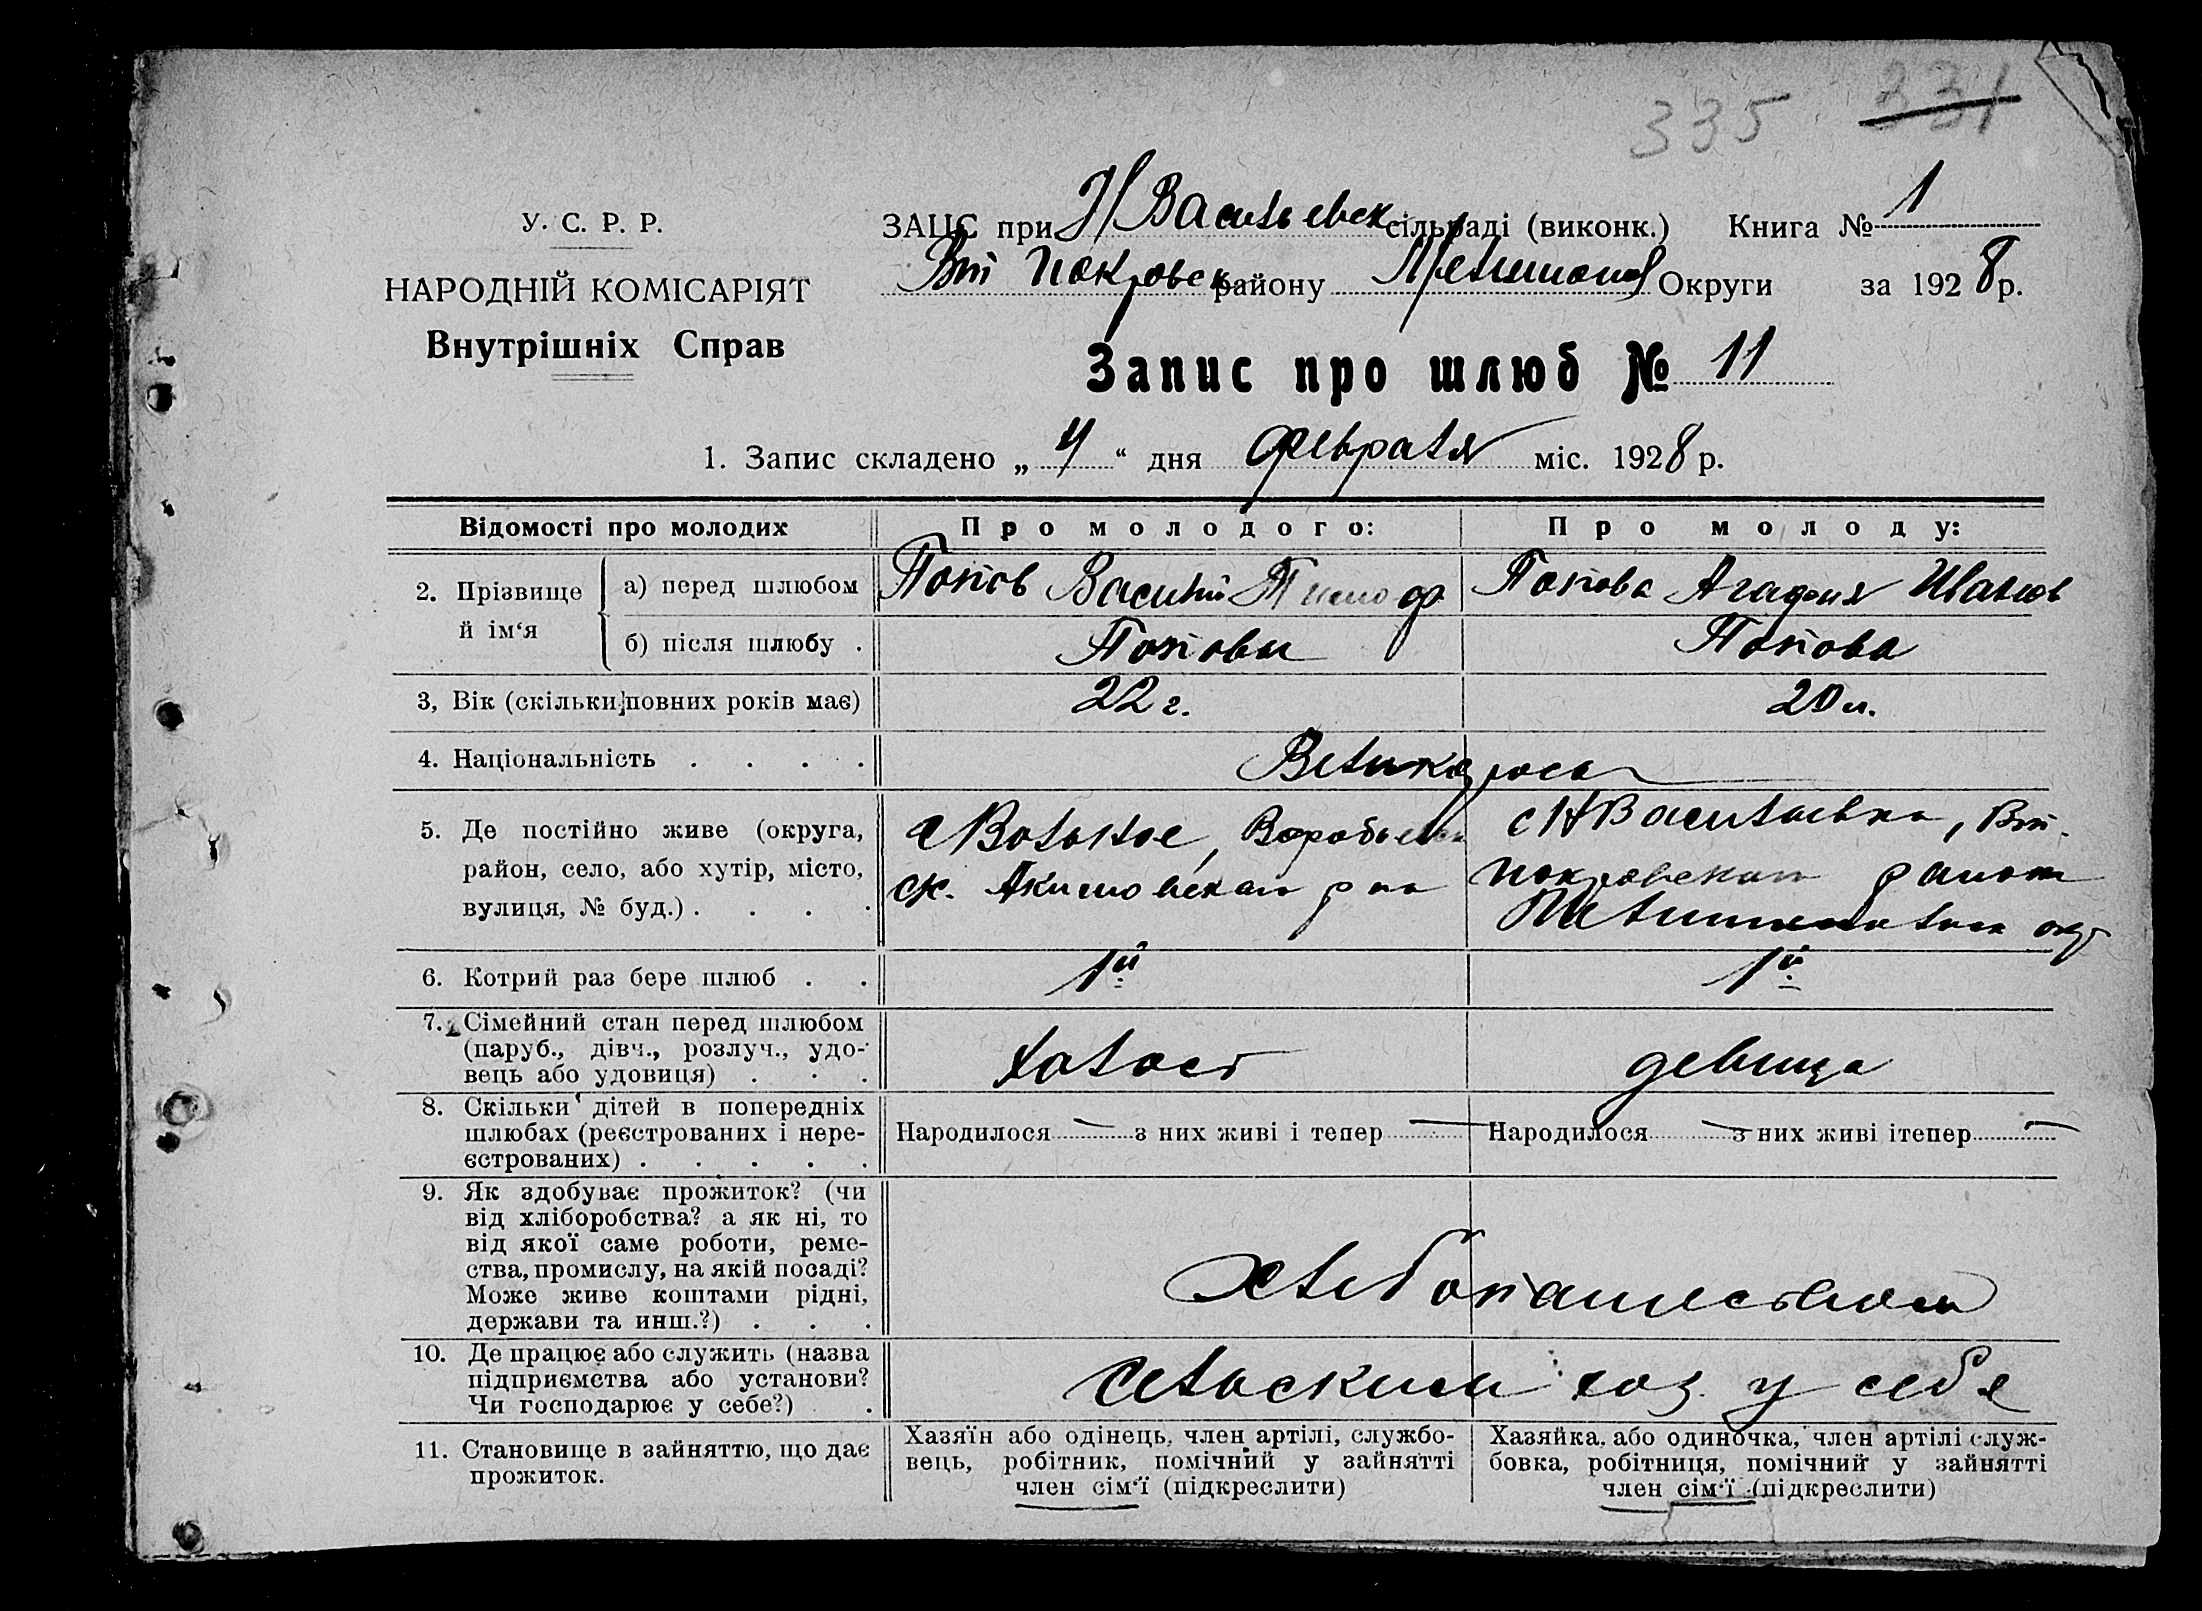 335 331
У. С. Р. Р.
НАРОДНІЙ КОМІСАРІЯТ
Внутрішніх Справ
ЗАЦС при Н Васильевск сільраді (виконк.) Книга № 1
Вт Покровск району Мелитопол Округи за 1928 р.
Запис про шлюб № 11
1. Запис складено „ 4 “ дня февраля міс. 1928 р.
Відомості про молодих
Про молодого:
Про молоду:
2. Прізвище й ім‘я
а) перед шлюбом
Попов Василий Тимоф
Попова Агафия Иванов
б) після шлюбу .
Поповы
Попова
3, Вік (скільки повних років має)
22 г.
20 л.
4. Національність . . . .
Великоросы
5. Де постійно живе (округа,
район, село, або хутір, місто,
вулиця, № буд.) . . . .
с Вольное, Воробьевск
с/с. Акимовского р на
с Н Васильевка, Вт.
покровского района
Мелитопольск окр
6. Котрий раз бере шлюб . .
1й
1й
7. Сімейний стан перед шлюбом
(паруб., дівч., розлуч., удо-
вець або удовиця) . . .
холост
девица
8. Скільки дітей в попередніх
шлюбах (реєстрованих і нере-
єстрованих) . . . . .
Народилося — з них живі і тепер —
Народилося — з них живі ітепер —
9. Як здобуває прожиток? (чи
від хліборобства? а як ні, то
від якої саме роботи, реме-
ства, промислу, на якій посаді?
Може живе коштами рідні,
держави та инш.?) . . .
хлебопашеством
10. Де працює або служить (назва
підприємства або установи?
Чи господарює у себе?) .
Сельским хоз. у себя
11. Становище в зайняттю, що дає
прожиток.
Хазяїн або одінець, член артілі, службо-
вець, робітник, помічний у зайнятті
член сім‘ї (підкреслити)
Хазяйка, або одиночка, член артілі служ-
бовка, робітниця, помічний у зайнятті
член сім‘ї (підкреслити)